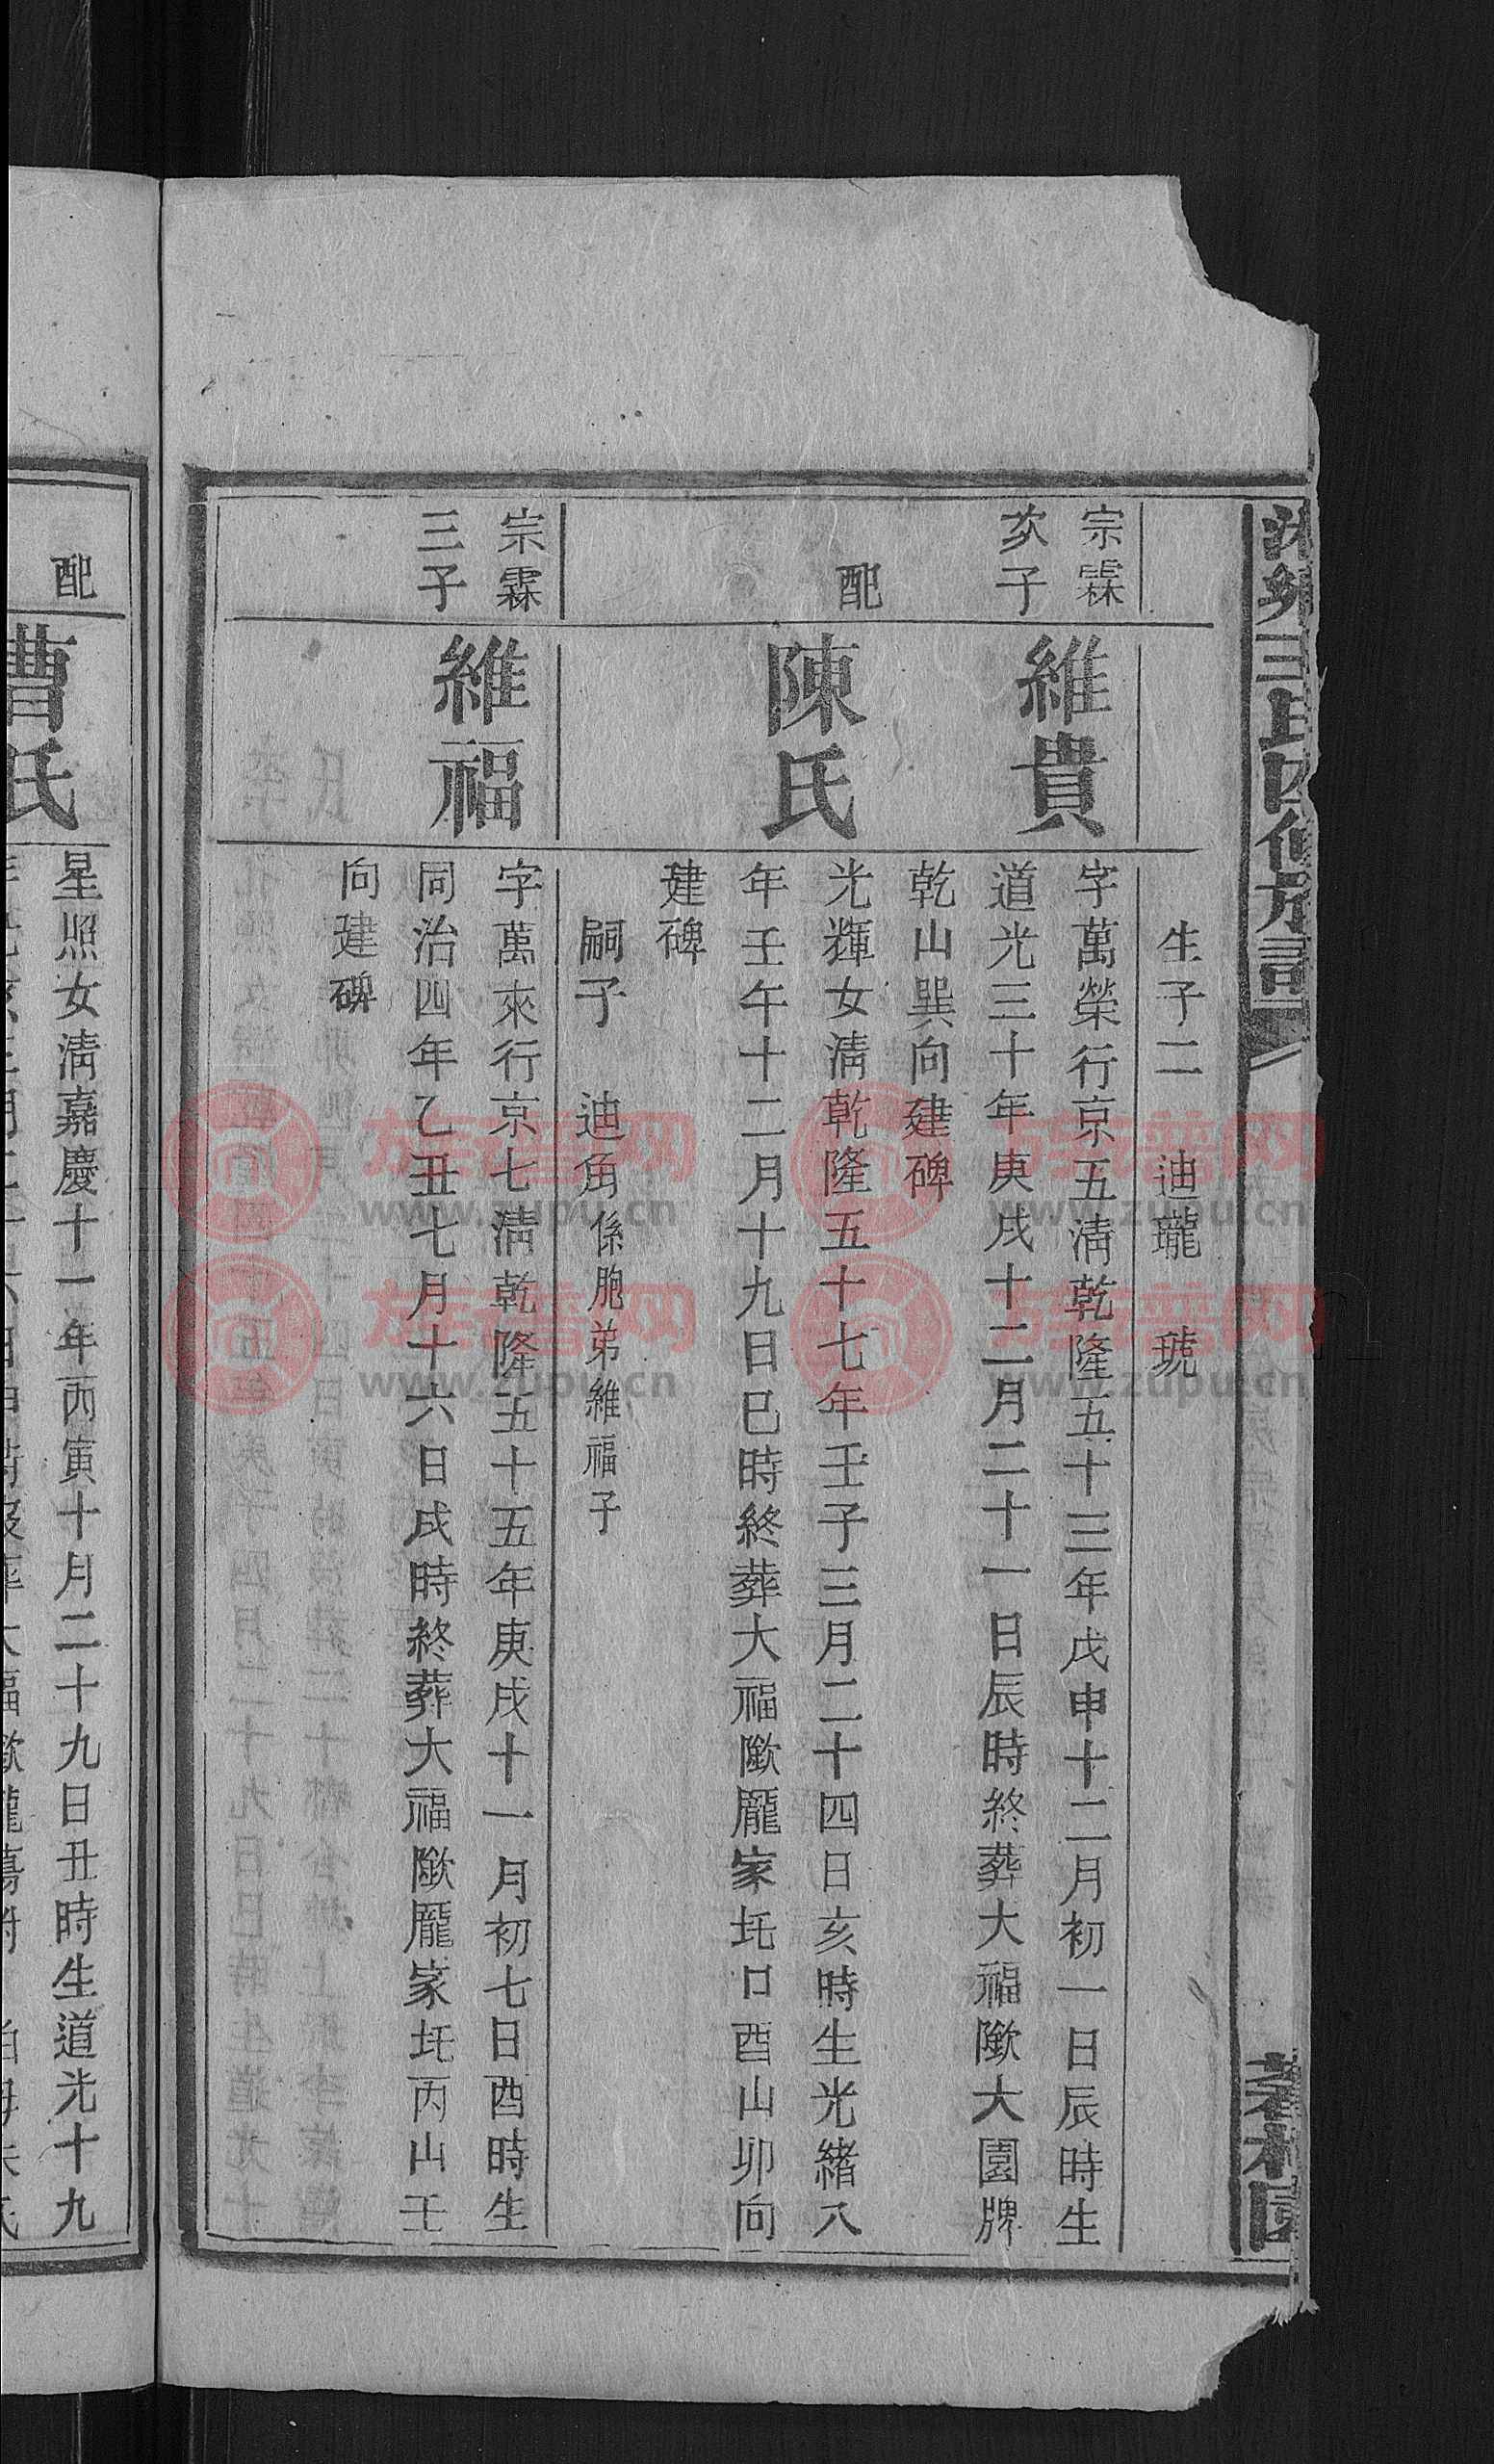 生子二　迪瓏　琥
宗霖
次子
維貴
字萬榮行京五淸乾隆五十三年戊申十二月初一日辰時生
道光三十年庚戌十二月二十一日辰時終葬大福隞大園牌
乾山巽向建碑
配
陳氏
光輝女淸乾隆五十七年壬子三月二十四日亥時生光緒八
年壬午十二月十九日巳時終葬大福隞龎家圫口酉山卯向
建碑
嗣子　迪角係胞弟維福子
宗霖
三子
維福
字萬來行京七淸乾隆五十五年庚戌十一月初七日酉時生
同治四年乙丑七月十六日戌時終葬大福隞龎家圫丙山壬
向建碑
配
曹氏
星照女淸嘉慶十一年丙寅十月二十九日丑時生道光十九
族普网
www.zupu.cn
族普网
www.zupu.cn
族普网
www.zupu.cn
族普网
www.zupu.cn